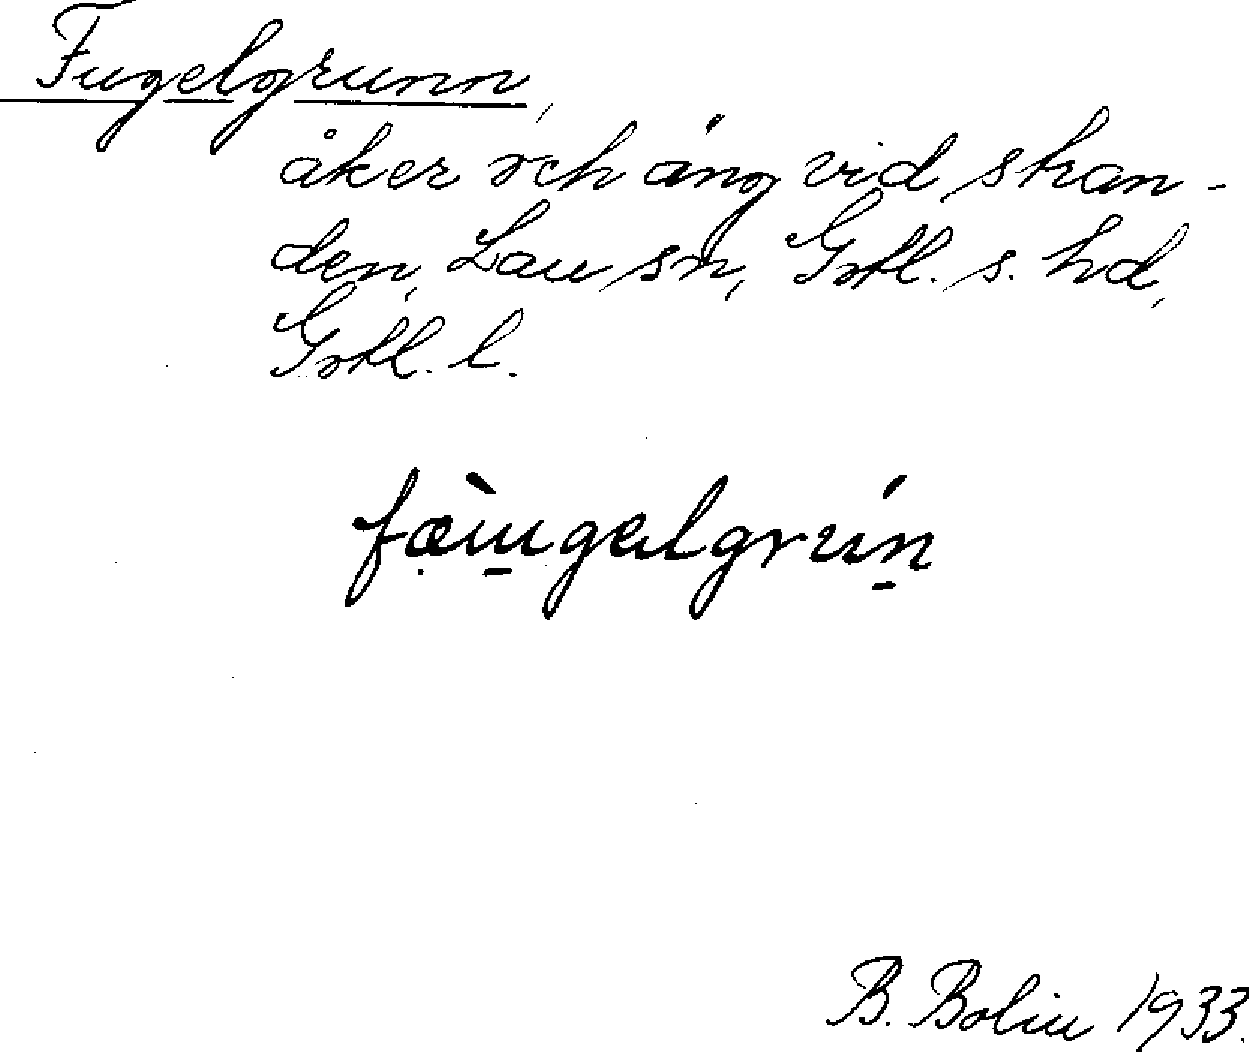 Fugelgrunn,
åker och äng vid stran-
den, Lau sn, Gotl. s. hd,
Gotl. l.
fæ̀u̱gəlgrún̠
B. Bolin 1933.